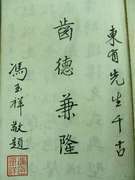 東甫先生千古
齒德兼隆
馮玉祥敬題